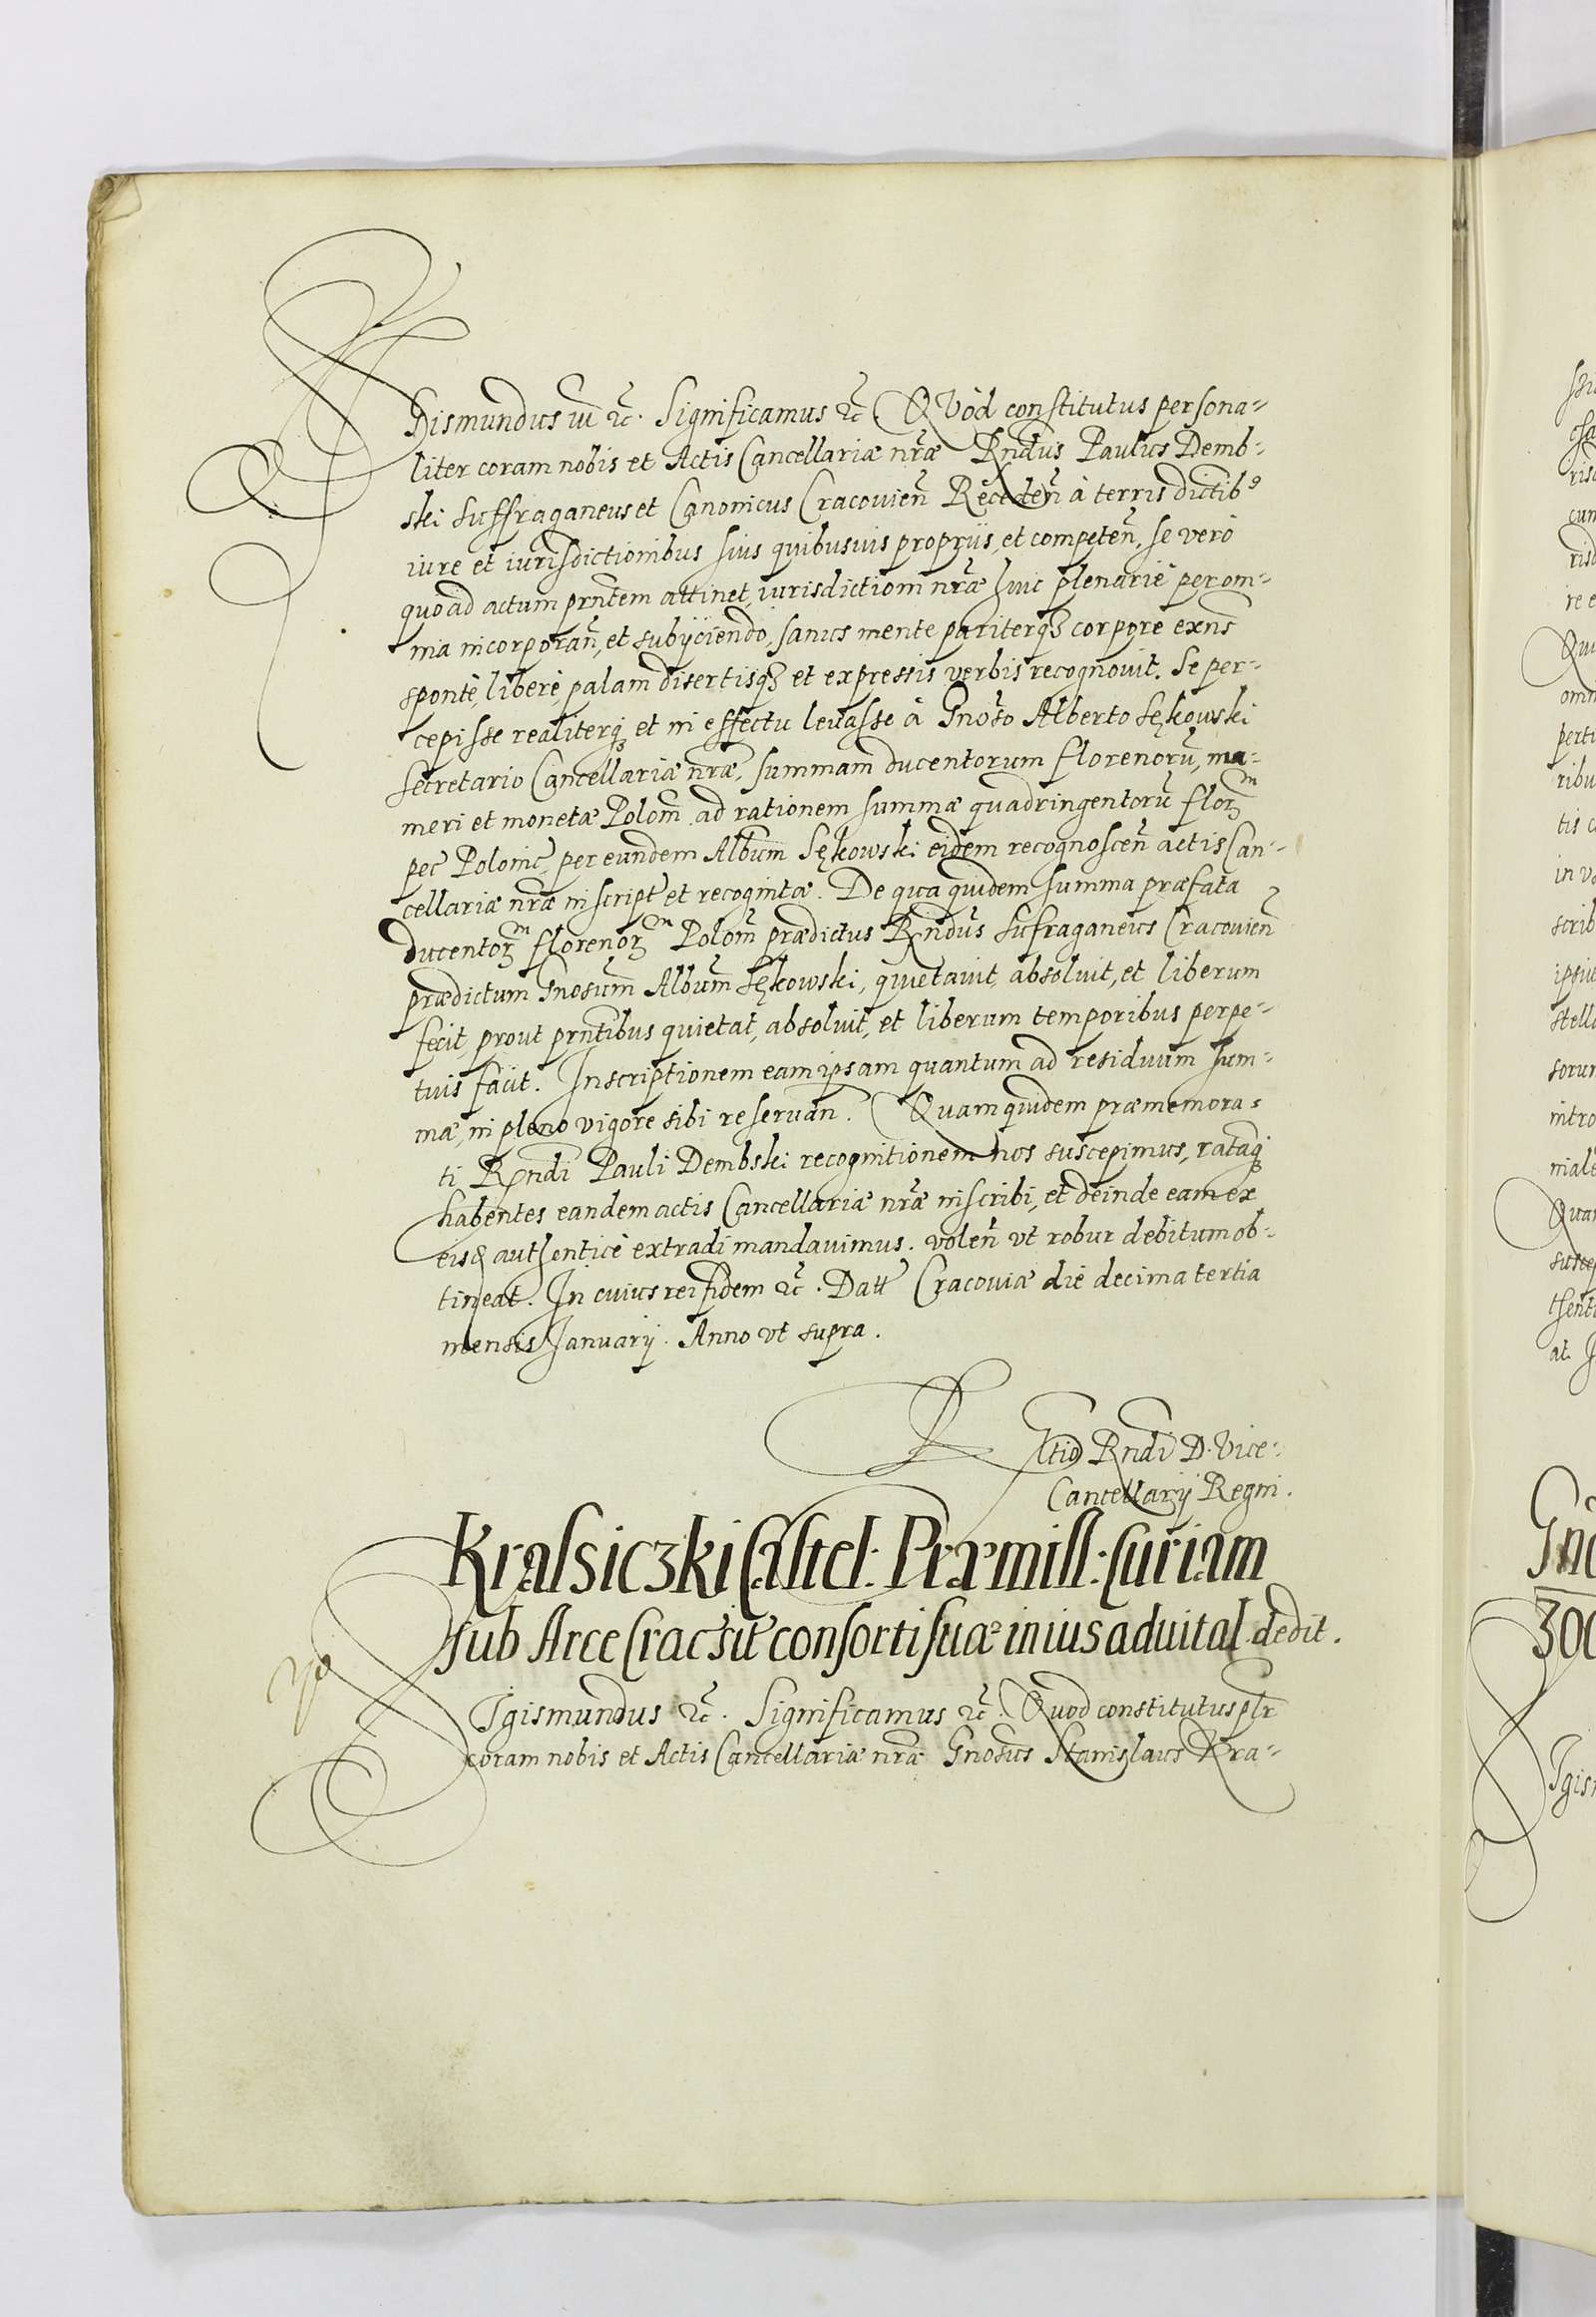 Sigismundus III ꝛc̃. Significamus ꝛc̃. Quòd constitutus persona=
liter coram nobis et Actis Cancellariæ nr̃æ Rñdus Paulus Demb=
ski Suffraganeus et Canonicus Cracovieñ Recedeñ à terris dictibꝰ
iure et iurisdictionibus suis quibusuis proprijs, et competeñ, se verò
quoad actum prñtem attinet, iurisdictioni nr̃æ huic plenariè per om=
nia incorporañ, et subijciendo, sanus mente pariterq₃ corpore exñs
spontè, liberè, palam disertisq₃ et expressis verbis recognouit. Se per=
cepisse realiterq₃ et in effectu leuasse à Gnoso Alberto Sękowski
Secretario Cancellariæ nr̃æ, summam ducentorum florenorũ, nu=
meri et monetæ Poloñ ad rationem summæ quadringentorũ florꝫᵐ
pec̃ Polonic̃, per eundem Albũm Sękowski eidem recognosceñ actis Can=
cellariæ nr̃æ inscript̃ et recognitæ. De qua quidem summa præfata
ducentorꝫᵐ florenorꝫᵐ Poloñ prædictus Rñdus Sufraganeus Cracovieñ
prædictum Gnosũm Albũm Sękowski, quietauit, absoluit, et liberum
fecit, prout prñtibus quietat, absoluit, et liberum temporibus perpe=
tuis facit. Inscriptionem eam ipsam quantum ad residuum sum=
mæ, in pleno vigore sibi reseruañ. Quam quidem præmemora=
ti Rñdi Pauli Dembski recognitionem nos suscepimus, ratamq₃
habentes eandem actis Cancellariæ nr̃æ inscribi, et deinde eam ex
eisd authenticè extradi mandauimus. voleñ vt robur debitum ob=
tineat. In cuius rei fidem ꝛc̃. Datt̃ Cracoviæ die decima tertia
mensis Ianuarij. Anno vt supra.
Rltio Rñdi D. Vice=
Cancellarij Regni.
Krasiczki Castel: Præmisl: Curiam
sub Arce Crac sit̃ consorti suæ in ius aduital. dedit.
Sigismundus ꝛc̃. Significamus ꝛc̃. Quod constitutus plr̃
coram nobis et Actis Cancellariæ nr̃æ Gnosus Stanislaus Kra=